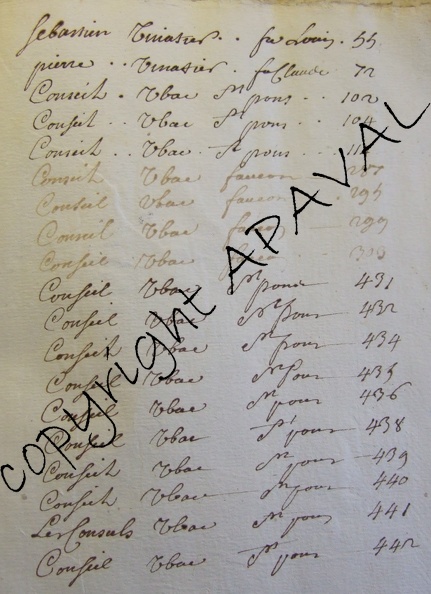 Sebastien Tinatier . . fu Louis . 55
pierre . . Vinatier . fu Claude 72
Conseil . Vbac St pons . . 102
Conseil . . Vbac St pons . . 104
Conseil . . Vbac St pons . .
Conseil Vbac faucon
Conseil Vbac faucon 295
Conseil Vbac 299
Conseil Vbac
Conseil Vbac St pons 431
Conseil Vbac St pons 432
Conseil Vbac St pons 434
Conseil Vbac St pons 435
Conseil Vbac St pons 436
Conseil Vbac St pons 438
Conseil Vbac St pons 439
Conseil Vbac St pons 440
Les Consuls Vbac St pons 441
Conseil Vbac St pons 442
copyright APAVAL